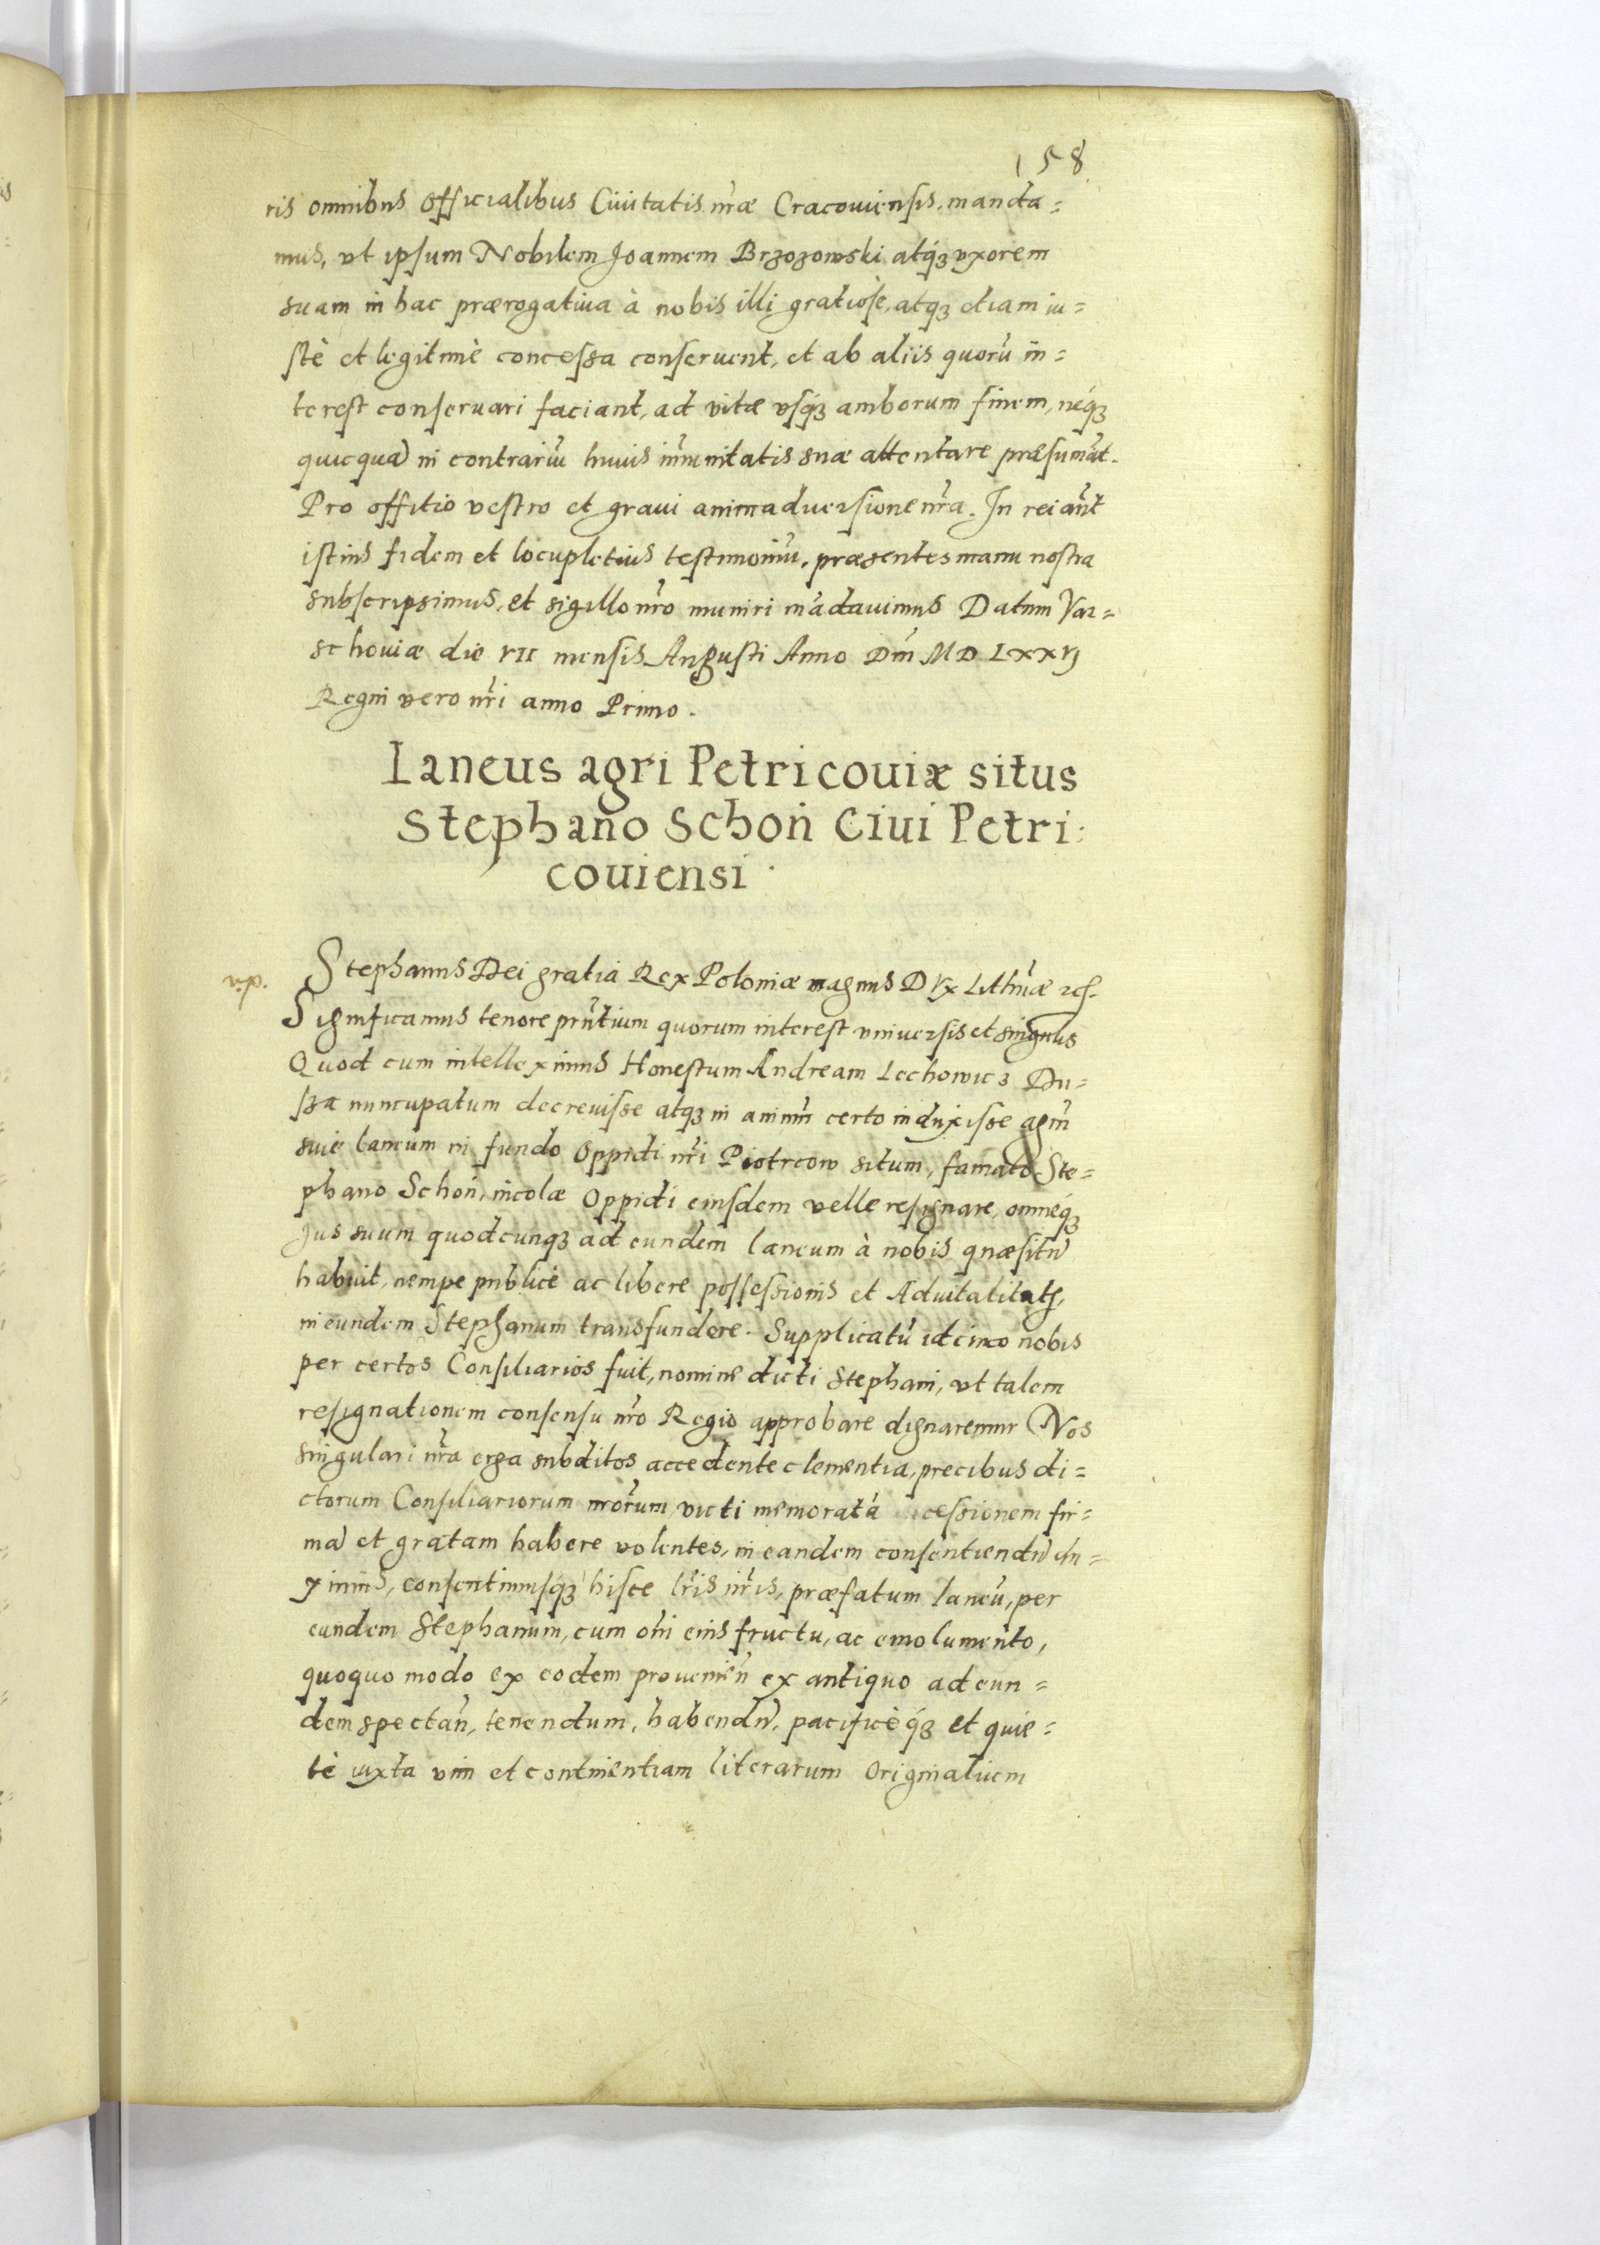 158
ris omnibus officialibus Ciuitatis nr̃æ Cracouiensis, manda=
mus, vt ipsum Nobilem Joannem Brzozowski atq́ꝫ vxorem
suam in hac prærogatiua à nobis illi gratiose, atqꝫ etiam iu=
stè et legitimè concessa conseruent, et ab aliis quorũ in=
terest conseruari faciant, ad vitæ vsq́ꝫ amborum finem, néqꝫ
quicquã in contrariũ huius im̃unitatis suæ attentare præsumãt.
Pro offitio vestro et graui animaduersione nr̃a. In rei aũt
istius fidem et locupletius testimoniũ, præsentes manu nostra
subscripsimus, et sigillo nr̃o muniri mãdauimus Datum Var=
schouiæ die VII mensis Augusti Anno Dm̃ MDLXXVI
Regni vero nr̃i anno Primo.
Laneus agri Petricouiæ situs
Stephano Schoń Ciui Petri:
couiensi.
Stephanus Dei gratia Rex Poloniæ magnus Dux Lithũæ
Significamus tenore prñtium quorum interest vniuersis et singulis
Quod cum intelleximus Honestum Andream Lechowicz Du=
sza nuncupatum decreuisse atqꝫ in animũ certo induxisse agrũ
siuè laneum in fundo Oppidi nr̃i Piotrcow situm, famato Ste=
phano Schoń, incolæ Oppidi eiusdem velle resignare, omnéqꝫ
Jus suum quodcunqꝫ ad eundem laneum à nobis quæsitũ
habuit, nempe publicè ac libere possessionis et Aduitalitatis,
in eundem Stephanum transfundere. Supplicatũ idcirco nobis
per certos Consiliarios fuit, nomine dicti Stephani, vt talem
resignationem consensu nr̃o Regio approbare dignaremur Nos
singulari nr̃a erga subditos accedente clementia, precibus di=
ctorum Consiliariorum nrõrum victi memoratá cessionem fir=
mã et gratam habere volentes, in eandem consentiendũ du=
ximus, consentimusq́ꝫ hisce lr̃is nr̃is, præfatum laneũ, per
eundem Stephanum, cum om̃i eius fructu, ac emolumento,
quoquo modo ex eodem prouenieñ ex antiquo ad eun=
dem spectañ, tenendum, habendũ, pacificè q́ꝫ et quie=
tè iuxta vim et continentiam literarum originalium